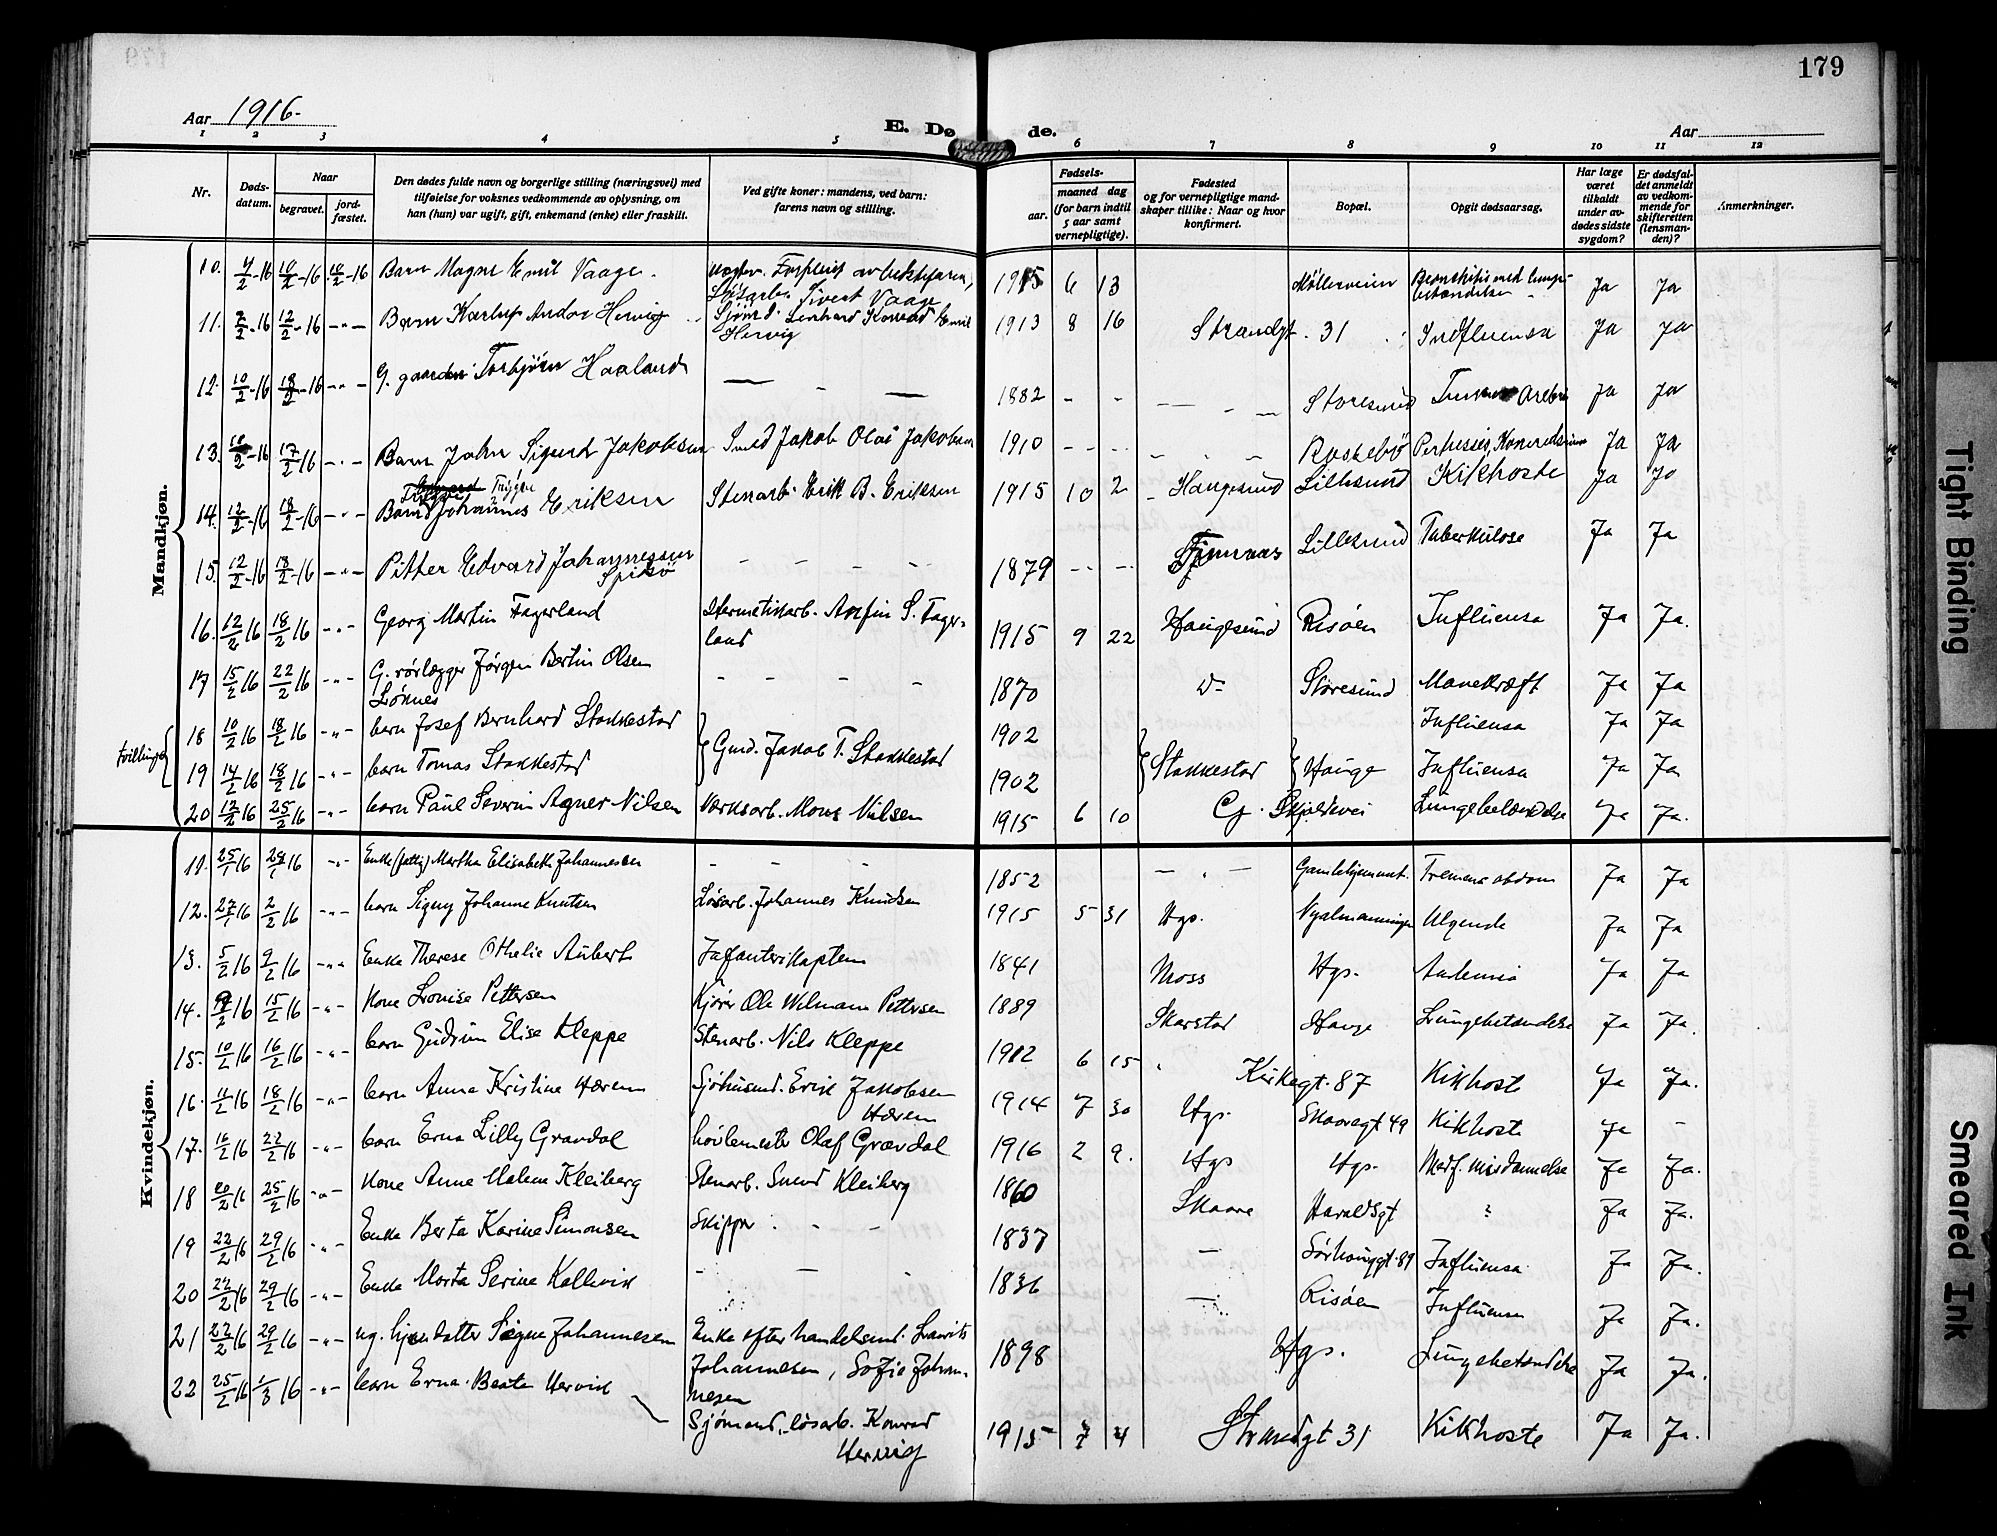 179
Aar 1916.
E. Dø de.
Aar
1 2 3 4 5 6 7 8 9 10 11 12
Nr.
Døds-datum.
Naar
begravet.
jord-fæstet.
Den dødes fulde navn og borgerlige stilling (næringsvei) med
tilføielse for voksnes vedkommende av oplysning, om
han (hun) var ugift, gift, enkemand (enke) eller fraskilt.
Ved gifte koner: mandens, ved barn:
farens navn og stilling.
Fødsels-
aar.
maaned dag
(for barn indtil
5 aar samt
vernepligtige).
Fødested
og for vernepligtige mand-
skaper tillike: Naar og hvor
konfirmert.
Bopæl.
Opgit dødsaarsag.
Har læge
været
tilkaldt
under av-
dødes sidste
sygdom?
Er dødsfal-
det anmeldt
av vedkom-
mende for
skifteretten
(lensman-
den)?
Anmerkninger.
Mandkjøn.
10. Barn Magne Emil Vaage. Løsarb. Sivert Vaage 1915 6 13 Møllerveien Bronchitis med lunge-betændelse Ja Ja
11. 12/2-16 -"- Barn Andor Hervig Sjømd. Lenhard Konrad Emil Hervig 1913 8 16 Strandgt. 31 Influensa Ja Ja
12. 10/2-16 18/2-16 -"- Torbjørn Haaland 1882 Storesund Ja Ja
13. 17/2-16 -"- Barn John Sigurd Jakobsen Smed Jakob Olai Jakobsen 1910 Ja Ja
14. 12/2-16 18/2-16 -"- Barn Johannes Eriksen Stenarb. Erik B. Eriksen 1915 10 2 Haugesund Lillesund Kikhoste Ja Ja
15. 12/2-16 18/2-16 -"- Pitter Edvard Johannessen 1879 Lillesund Tuberkulose Ja Ja
16. 12/2 16 18/2 16 -"- Georg Martin Fagerland Hermetikarb. Arnfin S. Fager-land 1915 9 22 Haugesund Risøen Influensa Ja Ja.
17 15/2 16 22/2 16 -"- G. rørlægger Jørgen Bertin Olsen Lønnes 1870 Storesund Mavekræft Ja Ja
tvillinger
18 10/2 16 18/2 16 -"- barn Josef Bernhard Stakkestad } Gmd. Jakob T. Stakkestad 1902 } Stakkestad } Hauge Influensa Ja Ja
19 14/2 16 18/2 16 -"- barn Tomas Stakkestad 1902 Influensa Ja Ja
20 17/2 16 25/2 16 -"- barn Paul Severin Agner Nilsen Verksarb. Mons Nilsen 1915 6 10 Skjoldvei Lungebetændelse Ja Ja.
Kvindekjøn.
11. 25/1 16 29/1 16 -"- Enke (fattig) Martha Elisabeth Johannesen 1852 Gamlehjemmet. Ja Ja
12. 27/1 16 2/2 16 -"- barn Signy Johanne Knutsen Løsarb. Johannes Knudsen 1915 5 31 Hgs. Ja Ja
13. 5/2 16 9/2 16 -"- Enke Therese Othelie Aubert Infanterikaptein 1841 Moss Hgs. Ja Ja
14. 15/2 16 -"- Kone Lovise Pettersen Kjører Ole Vilmann Pettersen 1889 Skarstad Hauge Lungebetændelse Ja Ja.
15. 10/2 16 16/2 16 -"- barn Gudrun Elise Kleppe Stenarb. Nils Kleppe 1912 6 15 Kirkegt. 87 Kikhoste Ja Ja.
16. 11/2 16 18/2 16 -"- barn Anna Kristine Hærem Sjøhusmd. Erik Jakobsen Hærem 1914 7 30 Hgs. Skaaregt 49 Kikhoste Ja -
17. 16/2 16 22/2 16 -"- barn Erna Lilly Gravdal høvlemester Olaf Gravdal 1916 2 9. Hgs Hgs. Medf. misdannelse Ja Ja.
18 20/2 16 25/2 16 -"- Kone Anne Malene Kleiberg Stenarb. Kleiberg 1860 Skaare Haraldsgt " Ja Ja.
19 22/2 16 29/2 16 -"- Enke Berta Karine Simonsen Skipper 1837 Sørhauggt. 89 Influensa Ja Ja.
20 22/2 16 29/2 16 -"- Enke Marta Serine Kallevik 1836 Risøen Influensa Ja Ja.
21 23/2 16 29/2 16 -"- ug. hjemdatter Signe Johannesen Enke efter handelsmd. Lavrits Johannesen, Sofie Johan-nesen 1898 Hgs. Lungebetændelse Ja Ja.
22 25/2 16 1/3 16 -"- barn Erna Beate Hervik Sjømand, løsarb. Konrad Hervig 1915 7 4 Strandgt 31 Kikhoste Ja Ja.
Tight Binding
Smeared Ink